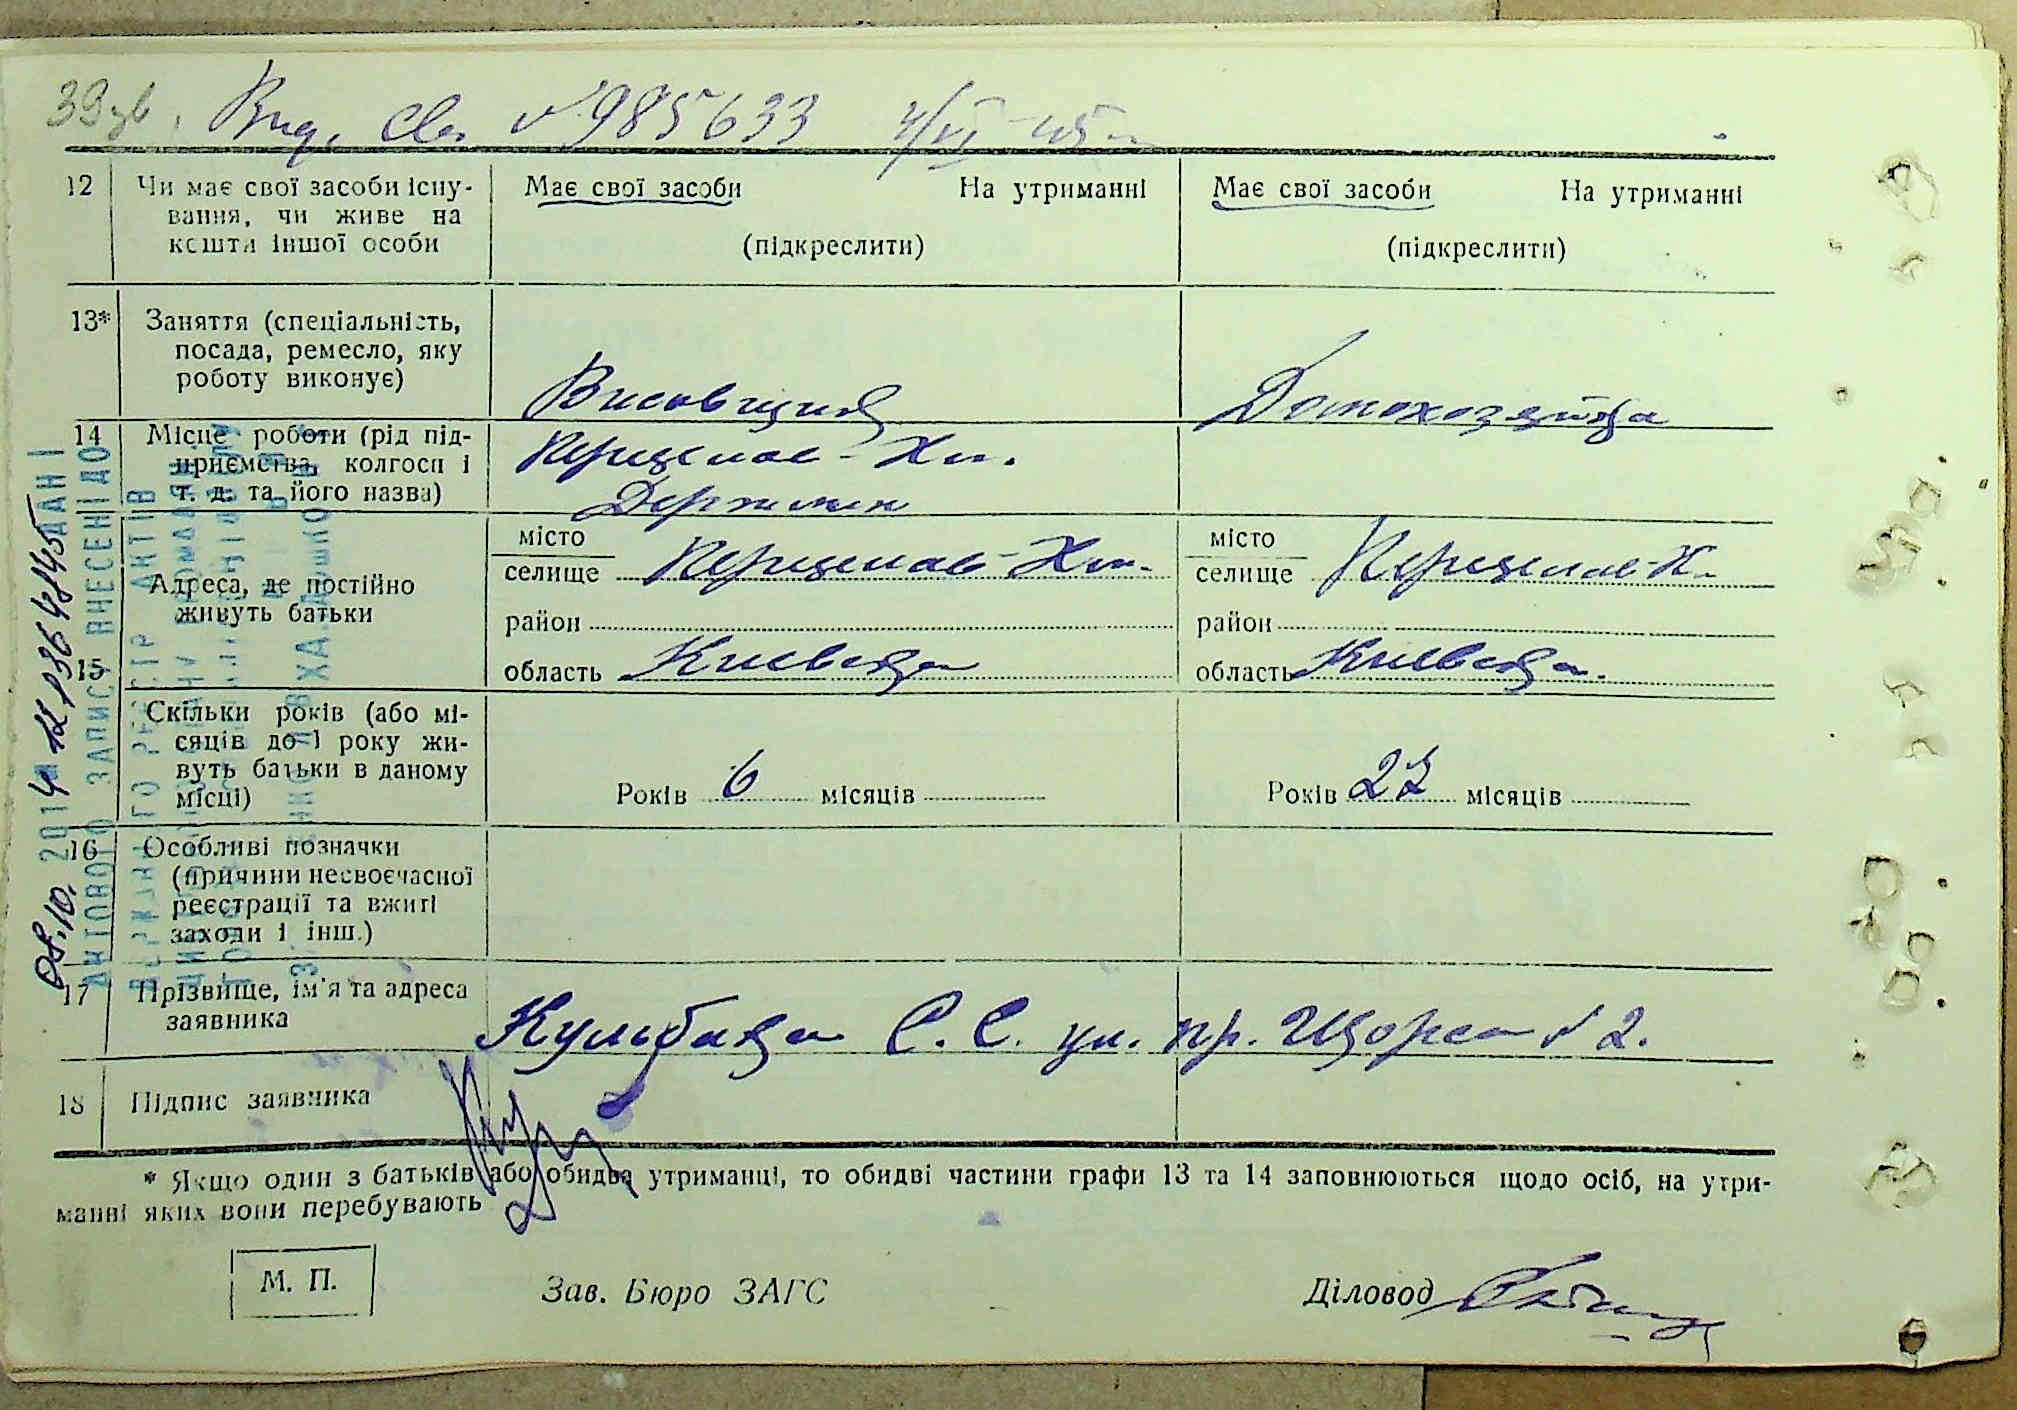 39зв. Выд. Св. № 985633 4/VI-45 г.
12 Чи має свої засоби існу-
вання, чи живе на
кошти іншої особи
Має свої засоби На утриманні
(підкреслити)
Має свої засоби На утриманні
(підкреслити)
13* Заняття (спеціальність,
посада, ремесло, яку
роботу виконує)
Висовщик
Домохозяйка
14 Місце роботи (рід під-
приємства, колгосп і
т. д. та його назва)
Переяслав-Хм.
15 Адреса, де постійно
живуть батьки
місто
селище Переяслав-Хм.
район
область Киевская
місто
селище Переяслав-Х.
район
область Киевская.
Скільки років (або мі-
сяців до 1 року жи-
вуть батьки в даному
місці)
Років 6 місяців
Років 27 місяців
16 Особливі позначки
(причини несвоєчасної
реєстрації та вжиті
заходи і інш.)
17 Прізвище, ім'я та адреса
заявника
С. С. ул. пр. Щорса № 2.
18 Підпис заявника
* Якщо один з батьків або обидва утриманці, то обидві частини графи 13 та 14 заповнюються щодо осіб, на утри-
манні яких вони перебувають
М. П.
Зав. Бюро ЗАГС
Діловод
08.10. 2014 ДАНІ
АКТОВОГО ЗАПИСУ ВНЕСЕНІ ДО
ДЕРЖАВНОГО РЕЄСТР АКТІВ